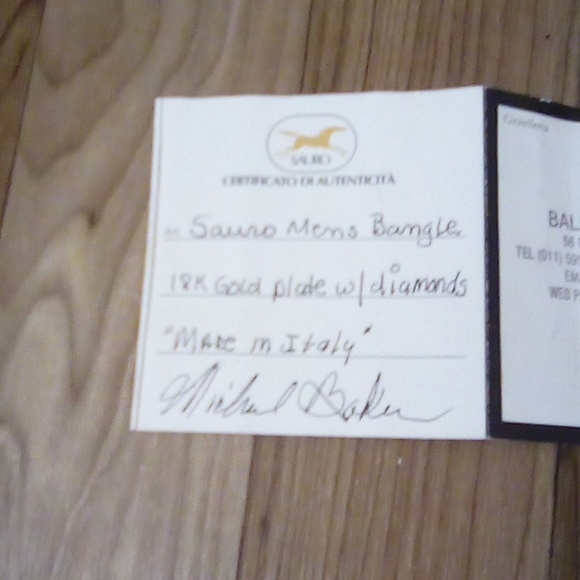 SAURO
CERTIFICATO DI AUTENTICITÀ
Sauro Mens Bangle
18K Gold plate w/diamonds
"Made in Italy"
Michael Baker
Gioielleria
BAL
56
TEL (011) 59
EM
WEB P